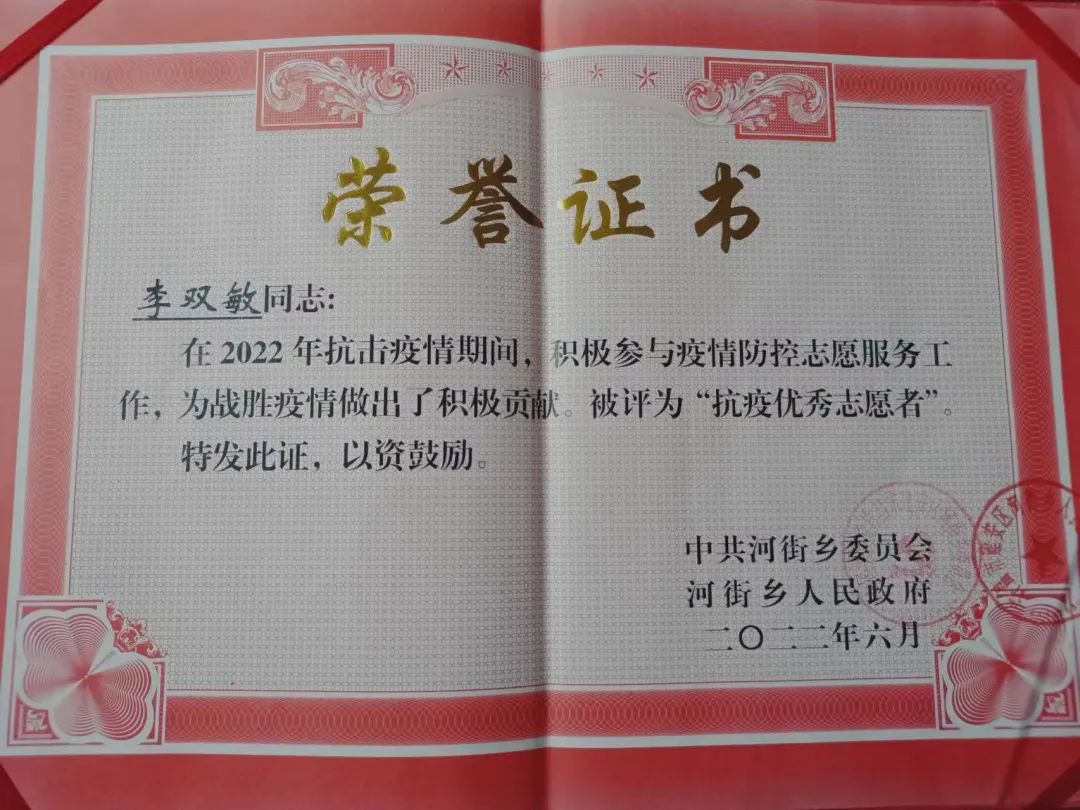 荣誉证书
李双敏同志:
在2022年抗击疫情期间，积极参与疫情防控志愿服务工
作，为战胜疫情做出了积极贡献。被评为“抗疫优秀志愿者”。
特发此证，以资鼓励。
中共河街乡委员会
河街乡人民政府
二〇二二年六月
市建安区